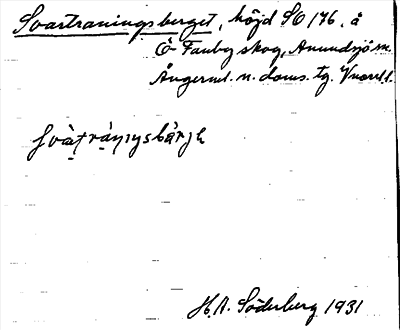 Svartraningsberget, höjd SO 176, å
Ö Fanby skog, Anundsjö sn.
Ångerml. n. doms. tg. Västerb. l.
Svàtrànıŋsbàrjə
H.A. Söderberg 1931